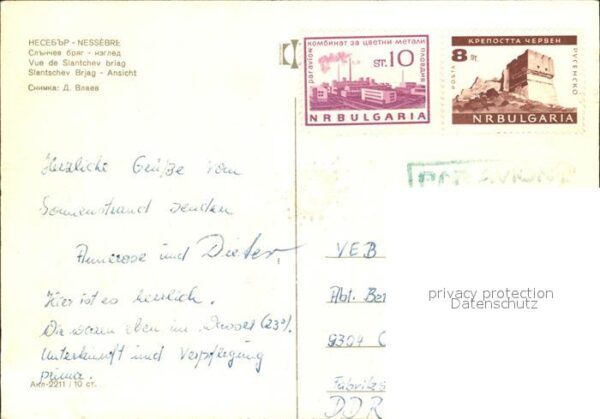 НЕСЕБЪР - NESSÈBRE
Слънчев бряг - изглед
Vue de Slantchev briag
Slantschev Brjag - Ansicht
Снимка: Д. Влаев
paravion
КОМБИНАТ ЗА ЦВЕТНИ МЕТАЛИ
ПЛОВДИВ
ST. 10
NRBULGARIA
КРЕПОСТТА ЧЕРВЕН
8 ST.
POSTA
РУСЕНСКО
NRBULGARIA
PAR AVION
Herzliche Grüße vom
Sonnenstrand senden
Annerose und Dieter.
Hier ist es herrlich.
Wir waren eben im Wasser (23°).
Unterkunft und Verpflegung
prima.
Акл-2211 / 10 ст.
VEB
Abt. Bet
9304
Fabriks
DDR
privacy protection
Datenschutz